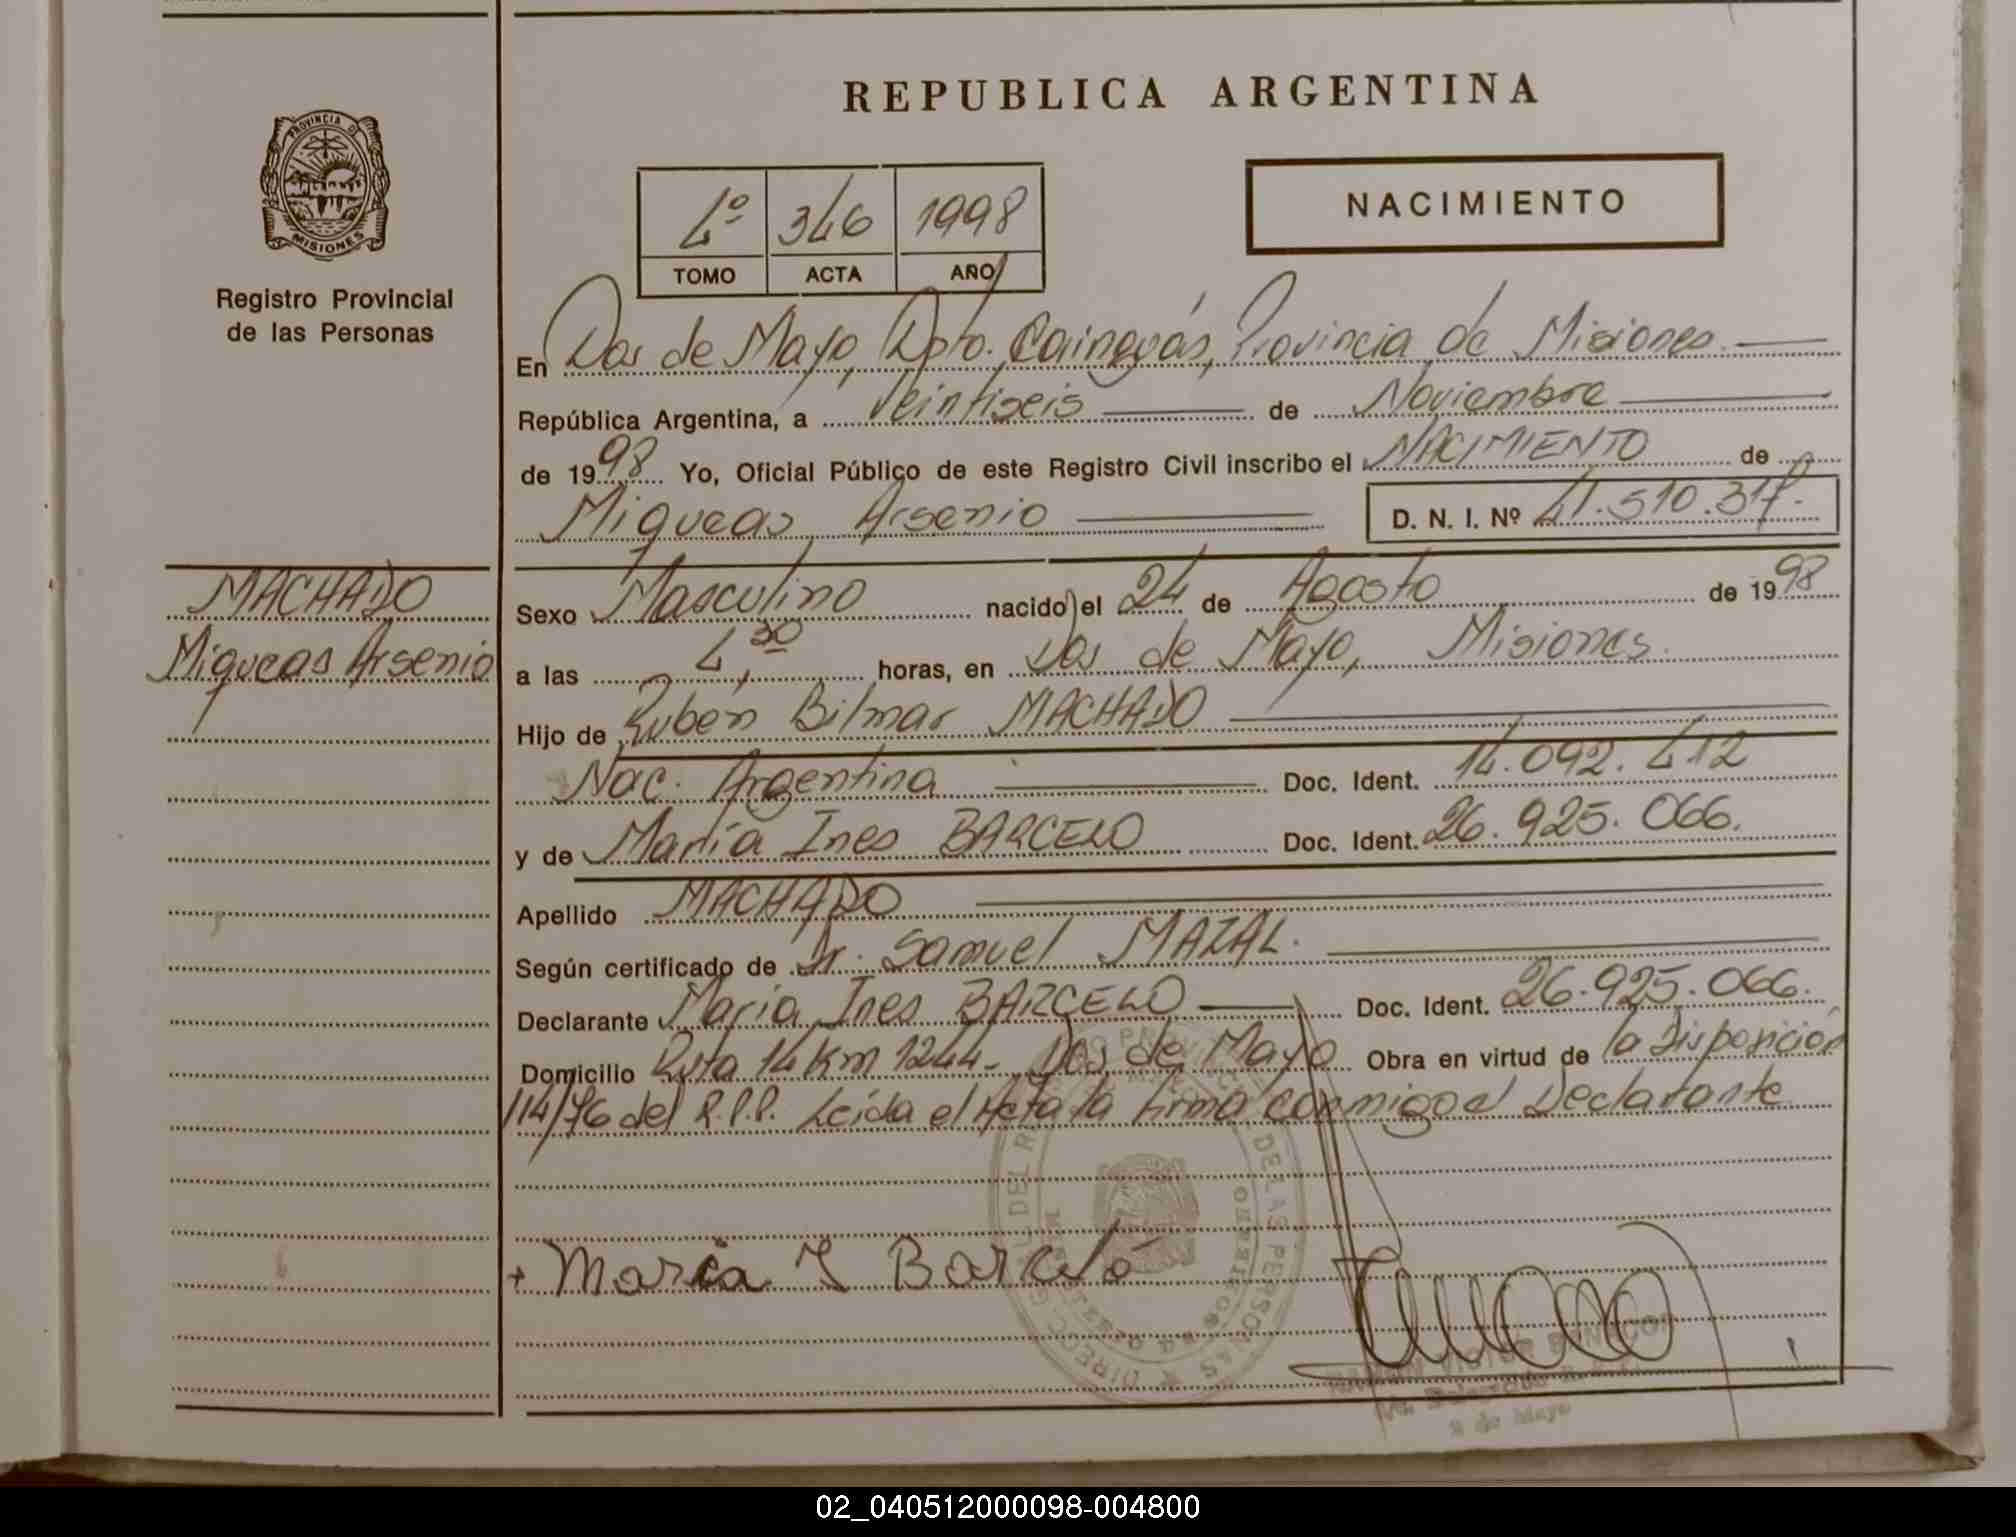 REPUBLICA ARGENTINA
PROVINCIA DE
MISIONES
Registro Provincial
de las Personas
4º 346 1998
TOMO ACTA AÑO
NACIMIENTO
En Dos de Mayo, Dpto. Cainguás, Provincia de Misiones.
República Argentina, a Veintiseis de Noviembre
de 1998 Yo, Oficial Público de este Registro Civil inscribo el NACIMIENTO de
Miqueas Arsenio D. N. I. Nº 41.510.317.
MACHADO
Miqueas Arsenio
Sexo Masculino nacido el 24 de Agosto de 1998
a las 4,30 horas, en Dos de Mayo, Misiones.
Hijo de Rubén Bilmar MACHADO
Nac. Argentina Doc. Ident. 14.092.412
y de María Ines BARCELO Doc. Ident. 26.925.066.
Apellido MACHADO
Según certificado de Dr. Samuel MAZAL.
Declarante María Ines BARCELO Doc. Ident. 26.925.066.
Domicilio Ruta 14 Km 1244- Dos de Mayo Obra en virtud de la Disposición
114/76 del R.P.P. Leída el Acta la firma conmigo el Declarante
DE LAS PERSONAS
Maria I Barceló
2 de Mayo
02_040512000098-004800